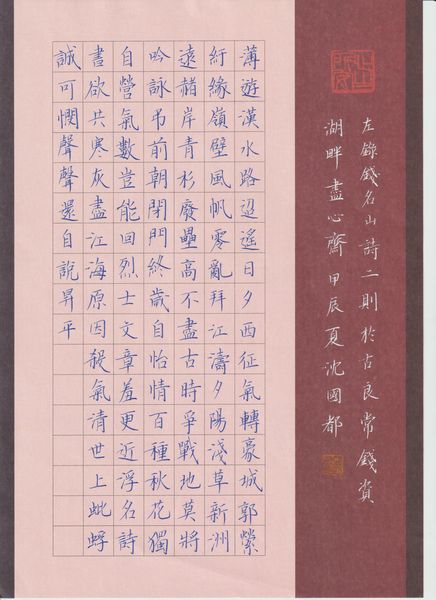 左錄錢名山詩二則於古良常錢資
湖畔盡心齋甲辰夏沈國都
薄遊漢水路迢遙日夕西征氣轉豪城郭縈
紆緣嶺壁風帆零亂拜江濤夕陽淺草新洲
遠赭岸青杉廢壘高不盡古時爭戰地莫將
吟詠弔前朝閉門終歲自怡情百種秋花獨
自營氣數豈能回烈士文章羞更近浮名詩
書欲共寒灰盡江海原因殺氣清世上蚍蜉
誠可憫聲聲還自說昇平